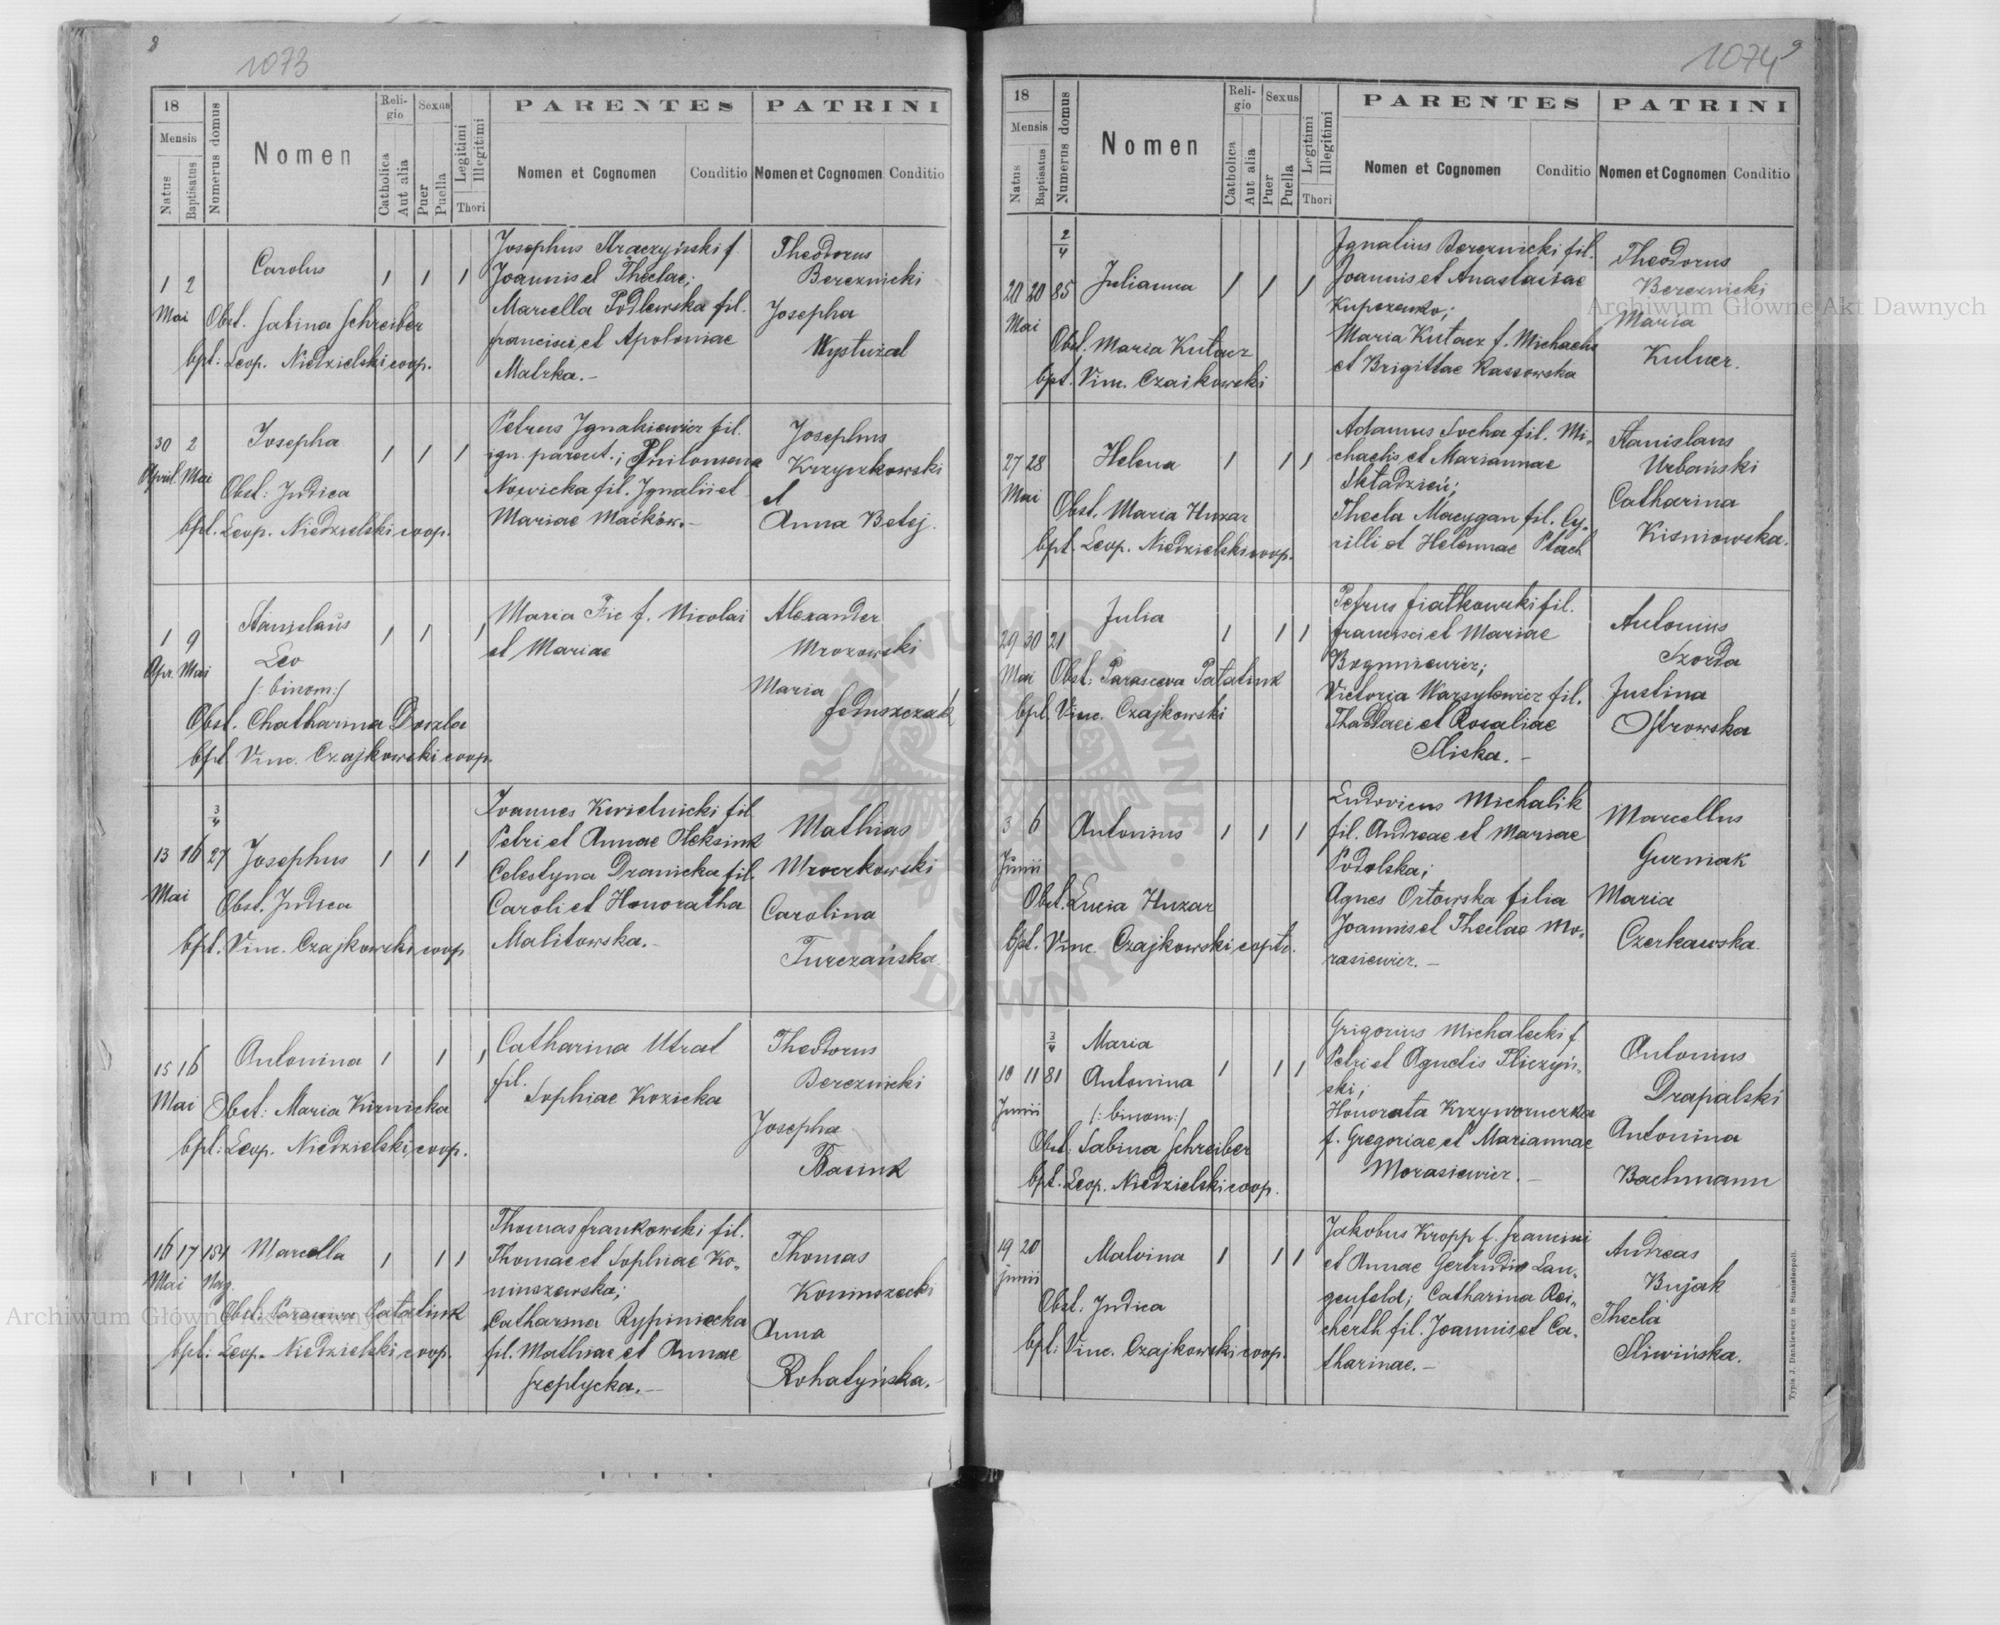 8
1073
18
Mensis
Natus
Baptisatus
Numerus domus
Nomen
Religio
Catholica
Aut alia
Sexus
Puer
Puella
Legitimi
Illegitimi
Thori
PARENTES
Nomen et Cognomen
Conditio
PATRINI
Nomen et Cognomen
Conditio
1 2
Mai
Carolus
1 1 1
Obst. Sabina Schreiber
bpt: Leop. Niedzielski coop.
Josephus f.
Joannis et Theclae;
Marcella Podlewska fil.
Francisci et Apoloniae
Matzka.-
Theodorus
Bereznicki
Josepha
30 2
April. Mai
Josepha
1 1 1
Obst: Judica
bpt. Leop. Niedzielski coop.
Petrus Ignakiewicz fil.
ign. parent.; Philomena
Nowicka fil. Ignatii et
Mariae Maćków.-
Josephus
Krzyczkowski
et
Anna Betej.
1 9
Apr. Mai
Stanislaus
Leo
/: binom:/
1 1 1
Obst. Chatharina Dovzla
bpt Vinc. Czajkowski coop.
Maria Fic f. Nicolai
et Mariae
Alexander
Mrozowski
Maria
Feduszczak
3/4
13 16 27
Mai
Josephus
1 1 1
Obst. Judica
bpt. Vinc. Czajkowski coop
Joannes Kwietnicki fil
Petri et Annae Oleksiuk
Celestyna Dranicka fil.
Caroli et Honoratha
Malitowska.-
Mathias
Mroczkowski
Carolina
Turczańska
15 16
Mai
Antonina
1 1 1
Obst: Maria Kuźnicka
bpt: Leop. Niedzielski, coop.
Catharina Utrat
fil.
Sophiae Kozicka
Theodorus
Bereznicki
Josepha
Basiuk
16 17 154
Mai Nag.
Marcella
1 1 1
Obst: Parasceva Patatiuk
bpt: Leop. Niedzielski coop.
Thomas Frankowski fil.
Thomae et Sophiae Ko-
niuszewska;
Catharina Rypiniecka
fil. Mathiae et Annae
Szeptycka.-
Thomas
Koniuszecki
Anna
Rohatyńska.
9
1074
18
Mensis
Natus
Baptisatus
Numerus domus
Nomen
Religio
Catholica
Aut alia
Sexus
Puer
Puella
Legitimi
Illegitimi
Thori
PARENTES
Nomen et Cognomen
Conditio
PATRINI
Nomen et Cognomen
Conditio
2/4
20 20 85
Mai
Julianna
1 1 1
Obst. Maria Kutacz
bpt. Vinc. Czaikowski
Ignatius Bereznicki fil.
Joannis et Anastasiae
Kuperenko;
Maria Kutacz f. Michaelis
et Brigittae Rassowska
Theodorus
Bereznicki
Maria
Kutner.
27 28
Mai
Helena
1 1 1
Obst. Maria Huzar
bpt. Leop. Niedzielski coop.
Adamus Socha fil. Mi-
chaelis et Mariannae
Składzień;
Thecla Macygan fil. Cy-
rilli et Helennae Ptach
Stanislaus
Urbański
Catharina
Kisniowska.
29 30 21
Mai
Julia
1 1 1
Obst: Parasceva Patatiuk
bpt. Vinc. Czajkowski
Petrus Fiałkowski fil.
Francisci et Mariae
Boguniewicz;
Victoria Warsylewicz fil.
Thaddaei et Rosaliae
Sliska.-
Antonius
Szorda
Justina
Ostrowska
3 6
Junii
Antonius
1 1 1
Obst. Lucia Huzar
bpt. Vinc. Czajkowski, coptr.
Ludovicus Michalik
fil. Andreae et Mariae
Podolska;
Agnes Orłowska filia
Joannis et Theclae Mo-
rasiewicz.-
Marcellus
Gurniak
Maria
Czerkawska
3/4
10 11 81
Junii
Maria
Antonina
/: binom:/
1 1 1
Obst: Sabina Schreiber
bpt. Leop. Niedzielski coop.
Grigorius Michalecki f.
Petri et Agnetis Pliczyń-
ski;
Honorata Krzyworuczka
f. Gregoriae et Mariannae
Morasiewicz.-
Antonius
Drapalski
Antonina
Bachmann
19 20
Junii
Malvina
1 1 1
Obst. Judica
bpt: Vinc. Czajkowski coop.
Jakobus Kropp f. Francisci
et Annae Gertrudis Lan-
genfeld; Catharina Rei-
cherth fil. Joannis et Ca-
tharinae.-
Andreas
Bujak
Thecla
Sliwińska.
Typis J. Dankiewicz in Stanislaopoli.
Archiwum Główne Akt Dawnych
Archiwum Główne Akt Dawnych
ARCHIWUM GŁÓWNE AKT DAWNYCH